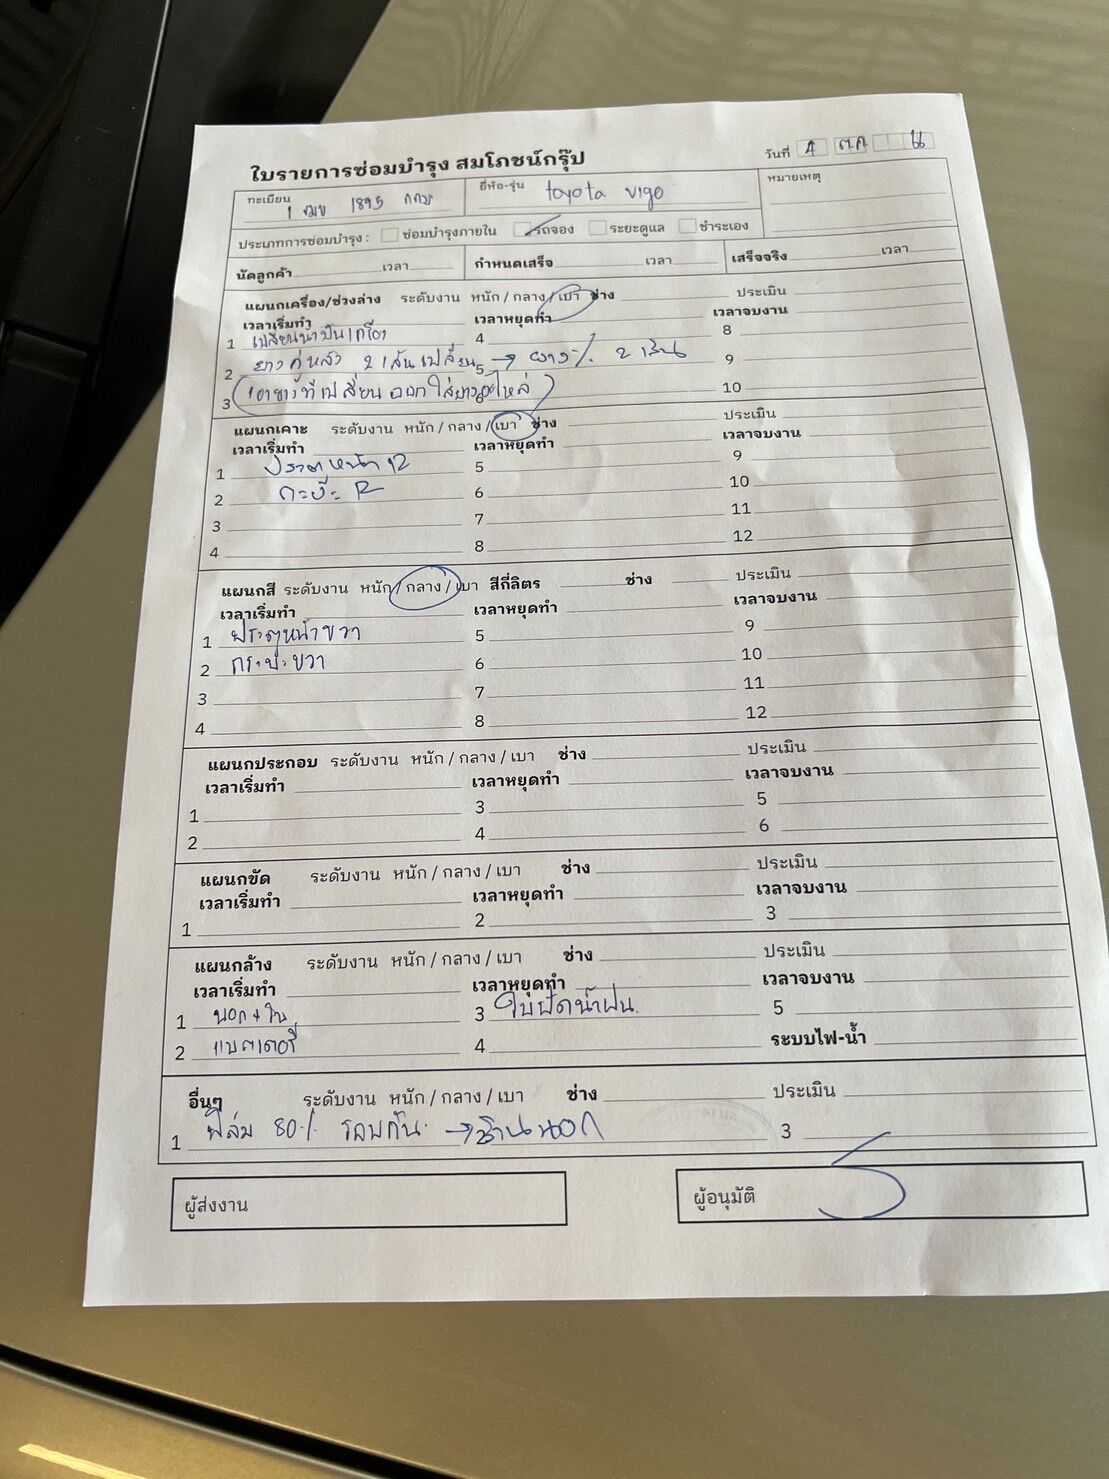 ใบรายการซ่อมบำรุง สมโภชน์กรุ๊ป
วันที่ 4 ต.ค
ทะเบียน 1 ฒข 1895 กทม ยี่ห้อ-รุ่น toyota vigo หมายเหตุ
ประเภทการซ่อมบำรุง : ซ่อมบำรุงภายใน รถจอง ระยะดูแล ชำระเอง
นัดลูกค้า เวลา กำหนดเสร็จ เวลา เสร็จจริง เวลา
แผนกเครื่อง/ช่วงล่าง ระดับงาน หนัก / กลาง / เบา ช่าง ประเมิน
เวลาเริ่มทำ เวลาหยุดทำ เวลาจบงาน
1 เปลี่ยนน้ำมันเครื่อง 4 8
2 ยางคู่หลัง 2 เส้นเปลี่ยน 5 → ยาง % 2 เส้น 9
3 (เอายางที่เปลี่ยนออกใส่ยางอะไหล่) 10
แผนกเคาะ ระดับงาน หนัก / กลาง / เบา ช่าง ประเมิน
เวลาเริ่มทำ เวลาหยุดทำ เวลาจบงาน
1 ประตูหน้า R 5 9
2 กะบะ R 6 10
3 7 11
4 8 12
แผนกสี ระดับงาน หนัก / กลาง / เบา สีกี่ลิตร ช่าง ประเมิน
เวลาเริ่มทำ เวลาหยุดทำ เวลาจบงาน
1 ประตูหน้าขวา 5 9
2 กระบะขวา 6 10
3 7 11
4 8 12
แผนกประกอบ ระดับงาน หนัก / กลาง / เบา ช่าง ประเมิน
เวลาเริ่มทำ เวลาหยุดทำ เวลาจบงาน
1 3 5
2 4 6
แผนกขัด ระดับงาน หนัก / กลาง / เบา ช่าง ประเมิน
เวลาเริ่มทำ เวลาหยุดทำ เวลาจบงาน
1 2 3
แผนกล้าง ระดับงาน หนัก / กลาง / เบา ช่าง ประเมิน
เวลาเริ่มทำ เวลาหยุดทำ เวลาจบงาน
1 นอก + ใน 3 ใบปัดน้ำฝน 5
2 แบตเตอรี่ 4 ระบบไฟ-น้ำ
อื่นๆ ระดับงาน หนัก / กลาง / เบา ช่าง ประเมิน
1 ฟิล์ม 80% รอบคัน → ร้านนอก 3
ผู้ส่งงาน ผู้อนุมัติ